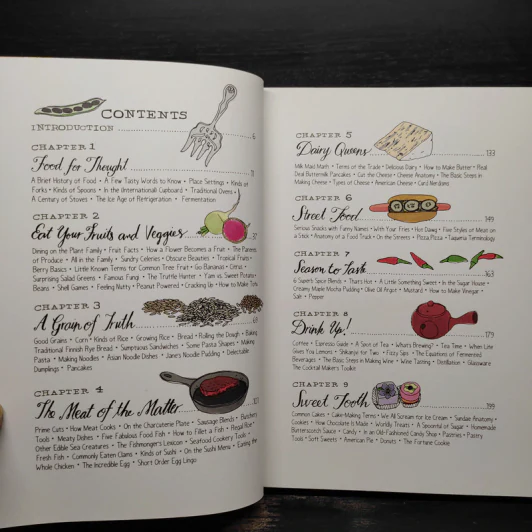 CONTENTS
INTRODUCTION 6
CHAPTER 1
Food for Thought 11
A Brief History of Food • A Few Tasty Words to Know • Place Settings • Kinds of
Forks • Kinds of Spoons • In the International Cupboard • Traditional Ovens •
A Century of Stoves • The Ice Age of Refrigeration • Fermentation
CHAPTER 2
Eat Your Fruits and Veggies 37
Dining on the Plant Family • Fruit Facts • How a Flower Becomes a Fruit • The Parents
of Produce • All in the Family • Sundry Celeries • Obscure Beauties • Tropical Fruits •
Berry Basics • Little Known Terms for Common Tree Fruit • Go Bananas • Citrus •
Surprising Salad Greens • Famous Fungi • The Truffle Hunter • Yam vs. Sweet Potato •
Beans • Shell Games • Feeling Nutty • Peanut Powered • Cracking Up • How to Make Tofu
CHAPTER 3
A Grain of Truth 61
Good Grains • Corn • Kinds of Rice • Growing Rice • Bread • Rolling the Dough • Baking
Traditional Finnish Rye Bread • Sumptuous Sandwiches • Some Pasta Shapes • Making
Pasta • Making Noodles • Asian Noodle Dishes • Jane's Noodle Pudding • Delectable
Dumplings • Pancakes
CHAPTER 4
The Meat of the Matter 107
Prime Cuts • How Meat Cooks • On the Charcuterie Plate • Sausage Blends • Butchery
Tools • Meaty Dishes • Five Fabulous Food Fish • How to Fillet a Fish • Regal Roe •
Other Edible Sea Creatures • The Fishmonger's Lexicon • Seafood Cookery Tools •
Fresh Fish • Commonly Eaten Clams • Kinds of Sushi • On the Sushi Menu • Eating the
Whole Chicken • The Incredible Egg • Short Order Egg Lingo
CHAPTER 5
Dairy Queens 133
Milk Maid Math • Terms of the Trade • Delicious Dairy • How to Make Butter • Real
Deal Buttermilk Pancakes • Cut the Cheese • Cheese Anatomy • The Basic Steps in
Making Cheese • Types of Cheese • American Cheese • Curd Nerdians
CHAPTER 6
Street Food 149
Serious Snacks with Funny Names • With Your Fries • Hot Dawg • Five Styles of Meat on
a Stick • Anatomy of a Food Truck • On the Streets • Pizza Pizza • Taqueria Terminology
CHAPTER 7
Season to Taste 163
6 Super Spice Blends • That's Hot • A Little Something Sweet • In the Sugar House •
Creamy Maple Mocha Pudding • Olive Oil Angst • Mustard • How to Make Vinegar •
Salt • Pepper
CHAPTER 8
Drink Up! 179
Coffee • Espresso Guide • A Spot of Tea • What's Brewing? • Tea Time • When Life
Gives You Lemons • Shikanje for Two • Fizzy Sips • The Equations of Fermented
Beverages • The Basic Steps in Making Wine • Wine Tasting • Distillation • Glassware
The Cocktail Makers Toolkit
CHAPTER 9
Sweet Tooth 199
Common Cakes • Cake-Making Terms • We All Scream for Ice Cream • Sundae Anatomy •
Cookies • How Chocolate Is Made • Worldly Treats • A Spoonful of Sugar • Homemade
Butterscotch Sauce • Candy • In an Old-Fashioned Candy Shop • Pastries • Pastry
Tools • Soft Sweets • American Pie • Donuts • The Fortune Cookie